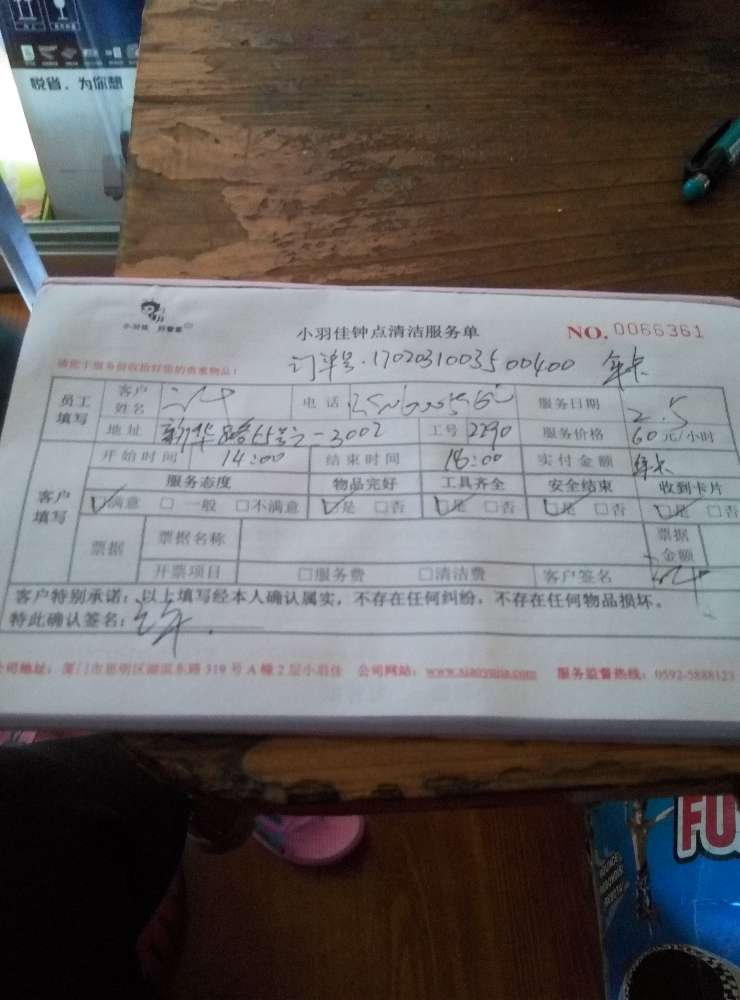 悦省，为你想
小羽佳 好管家
小羽佳钟点清洁服务单
NO. 0066361
请您于服务前收拾好您的贵重物品！
订单号.1702031003500400 年卡
员工填写 客户姓名 电话 服务日期 2.5
地址 新华路65号之一3002 工号 2290 服务价格 60元/小时
开始时间 14:00 结束时间 18:00 实付金额 年卡
客户填写 服务态度 物品完好 工具齐全 安全结束 收到卡片
满意 □一般 □不满意 是 □否 是 □否 是 □否 是 □否
票据 票据名称 票据金额
开票项目 □服务费 □清洁费 客户签名
客户特别承诺：以上填写经本人确认属实，不存在任何纠纷，不存在任何物品损坏。
特此确认签名：
公司地址：厦门市思明区湖滨东路319号A幢2层小羽佳 公司网站：www.xiaoyujia.com 服务监督热线：0592-5888123
FU